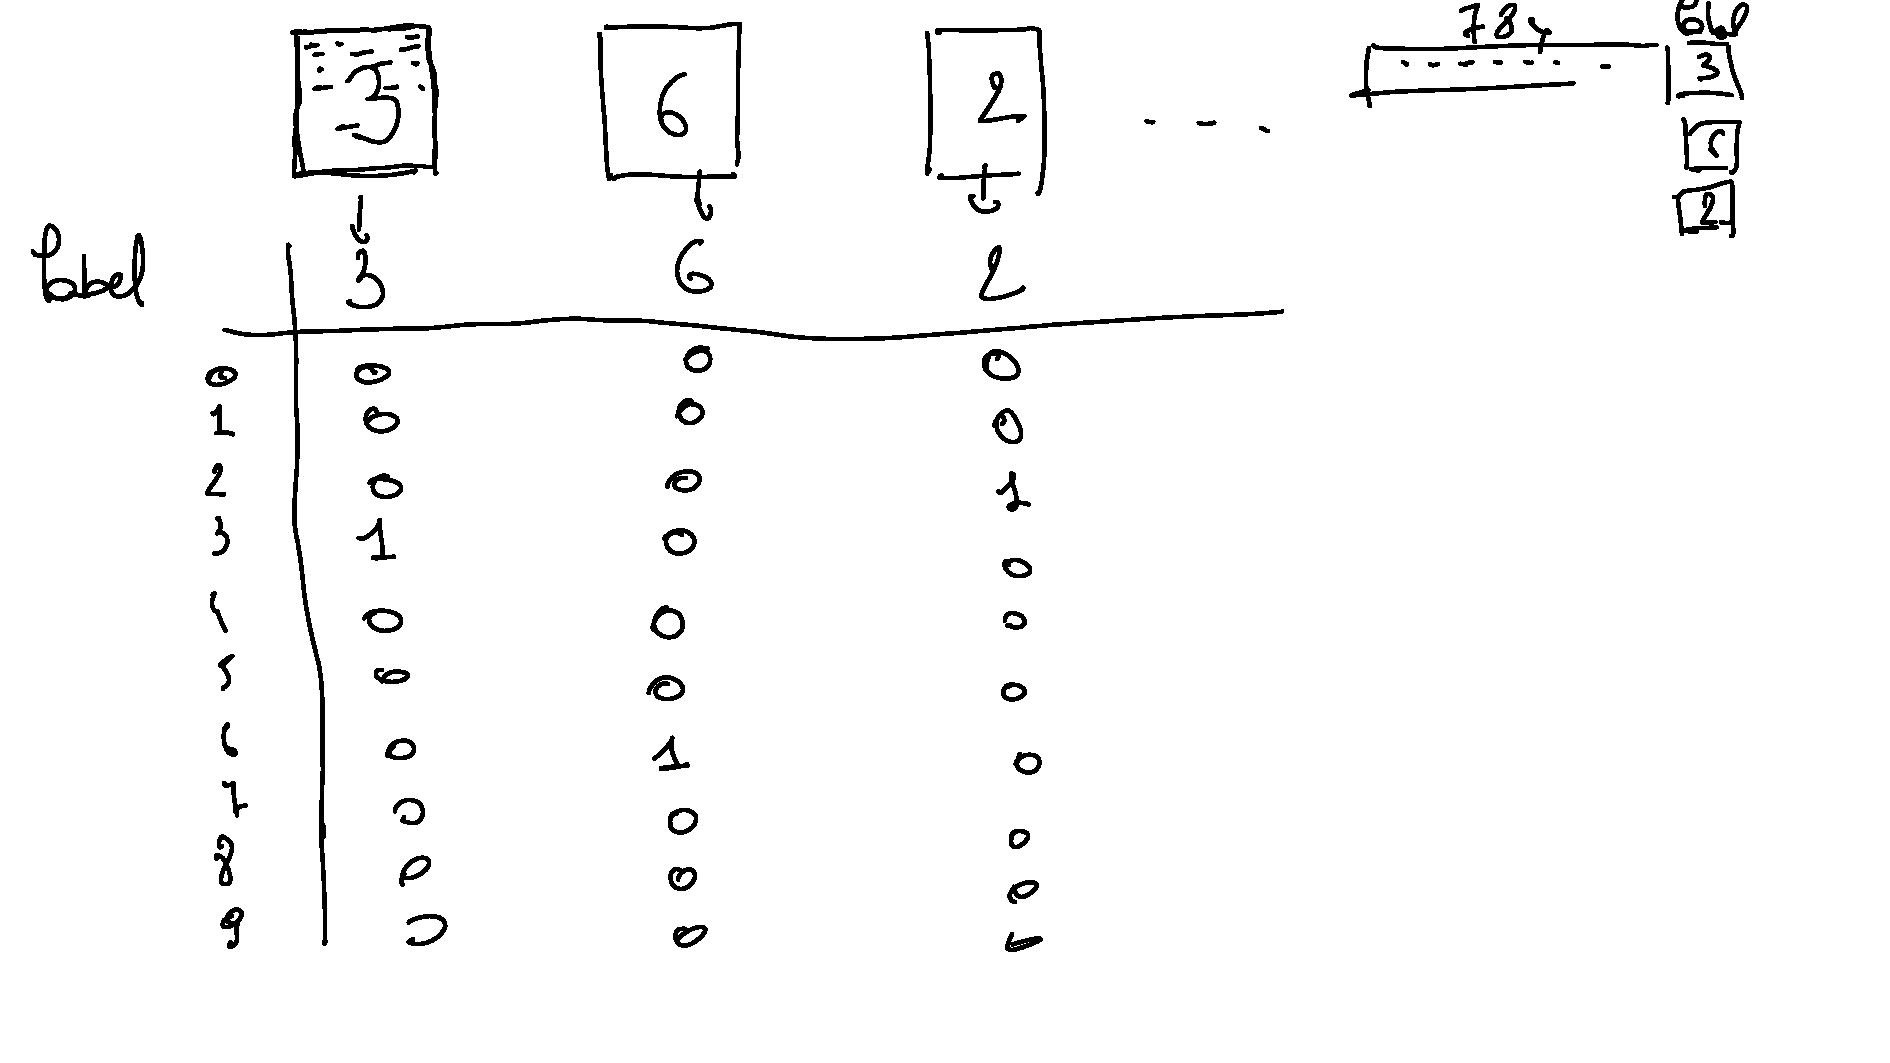 784 label
3 6 2 . . . 3
6
2
label 3 6 2
0 0 0 0
1 0 0 0
2 0 0 1
3 1 0 0
4 0 0 0
5 0 0 0
6 0 1 0
7 0 0 0
8 0 0 0
9 0 0 0